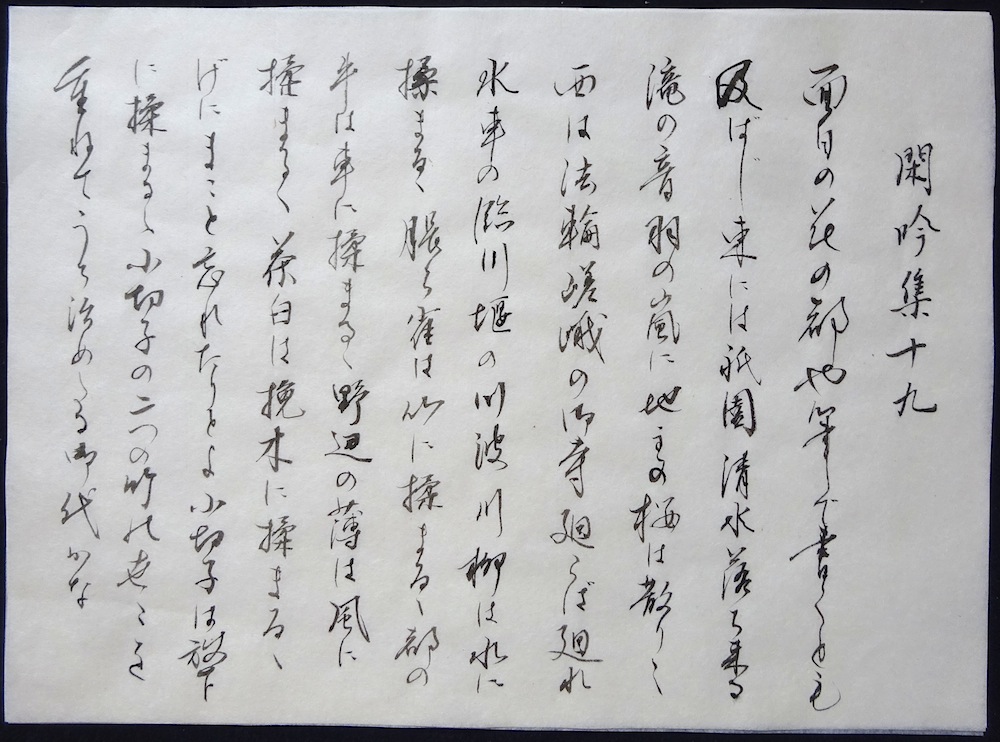 閑吟集十九
面白の花の都や筆で書くとも
及ばじ東には祇園清水落ち来る
滝の音羽の嵐に地主の桜は散り〱
西は法輪嵯峨の御寺廻らば廻れ
水車の臨川堰の川波川柳は水に
揉まるゝ脹ら雀は竹に揉まるゝ都の
牛は車に揉まるゝ野辺の薄は風に
揉まるゝ茶臼は挽木に揉まるゝ
げにまこと忘れたりとよ小切子は放下
に揉まるゝ小切子の二つの竹の世ゝを
重ねてうち治めたる御代かな